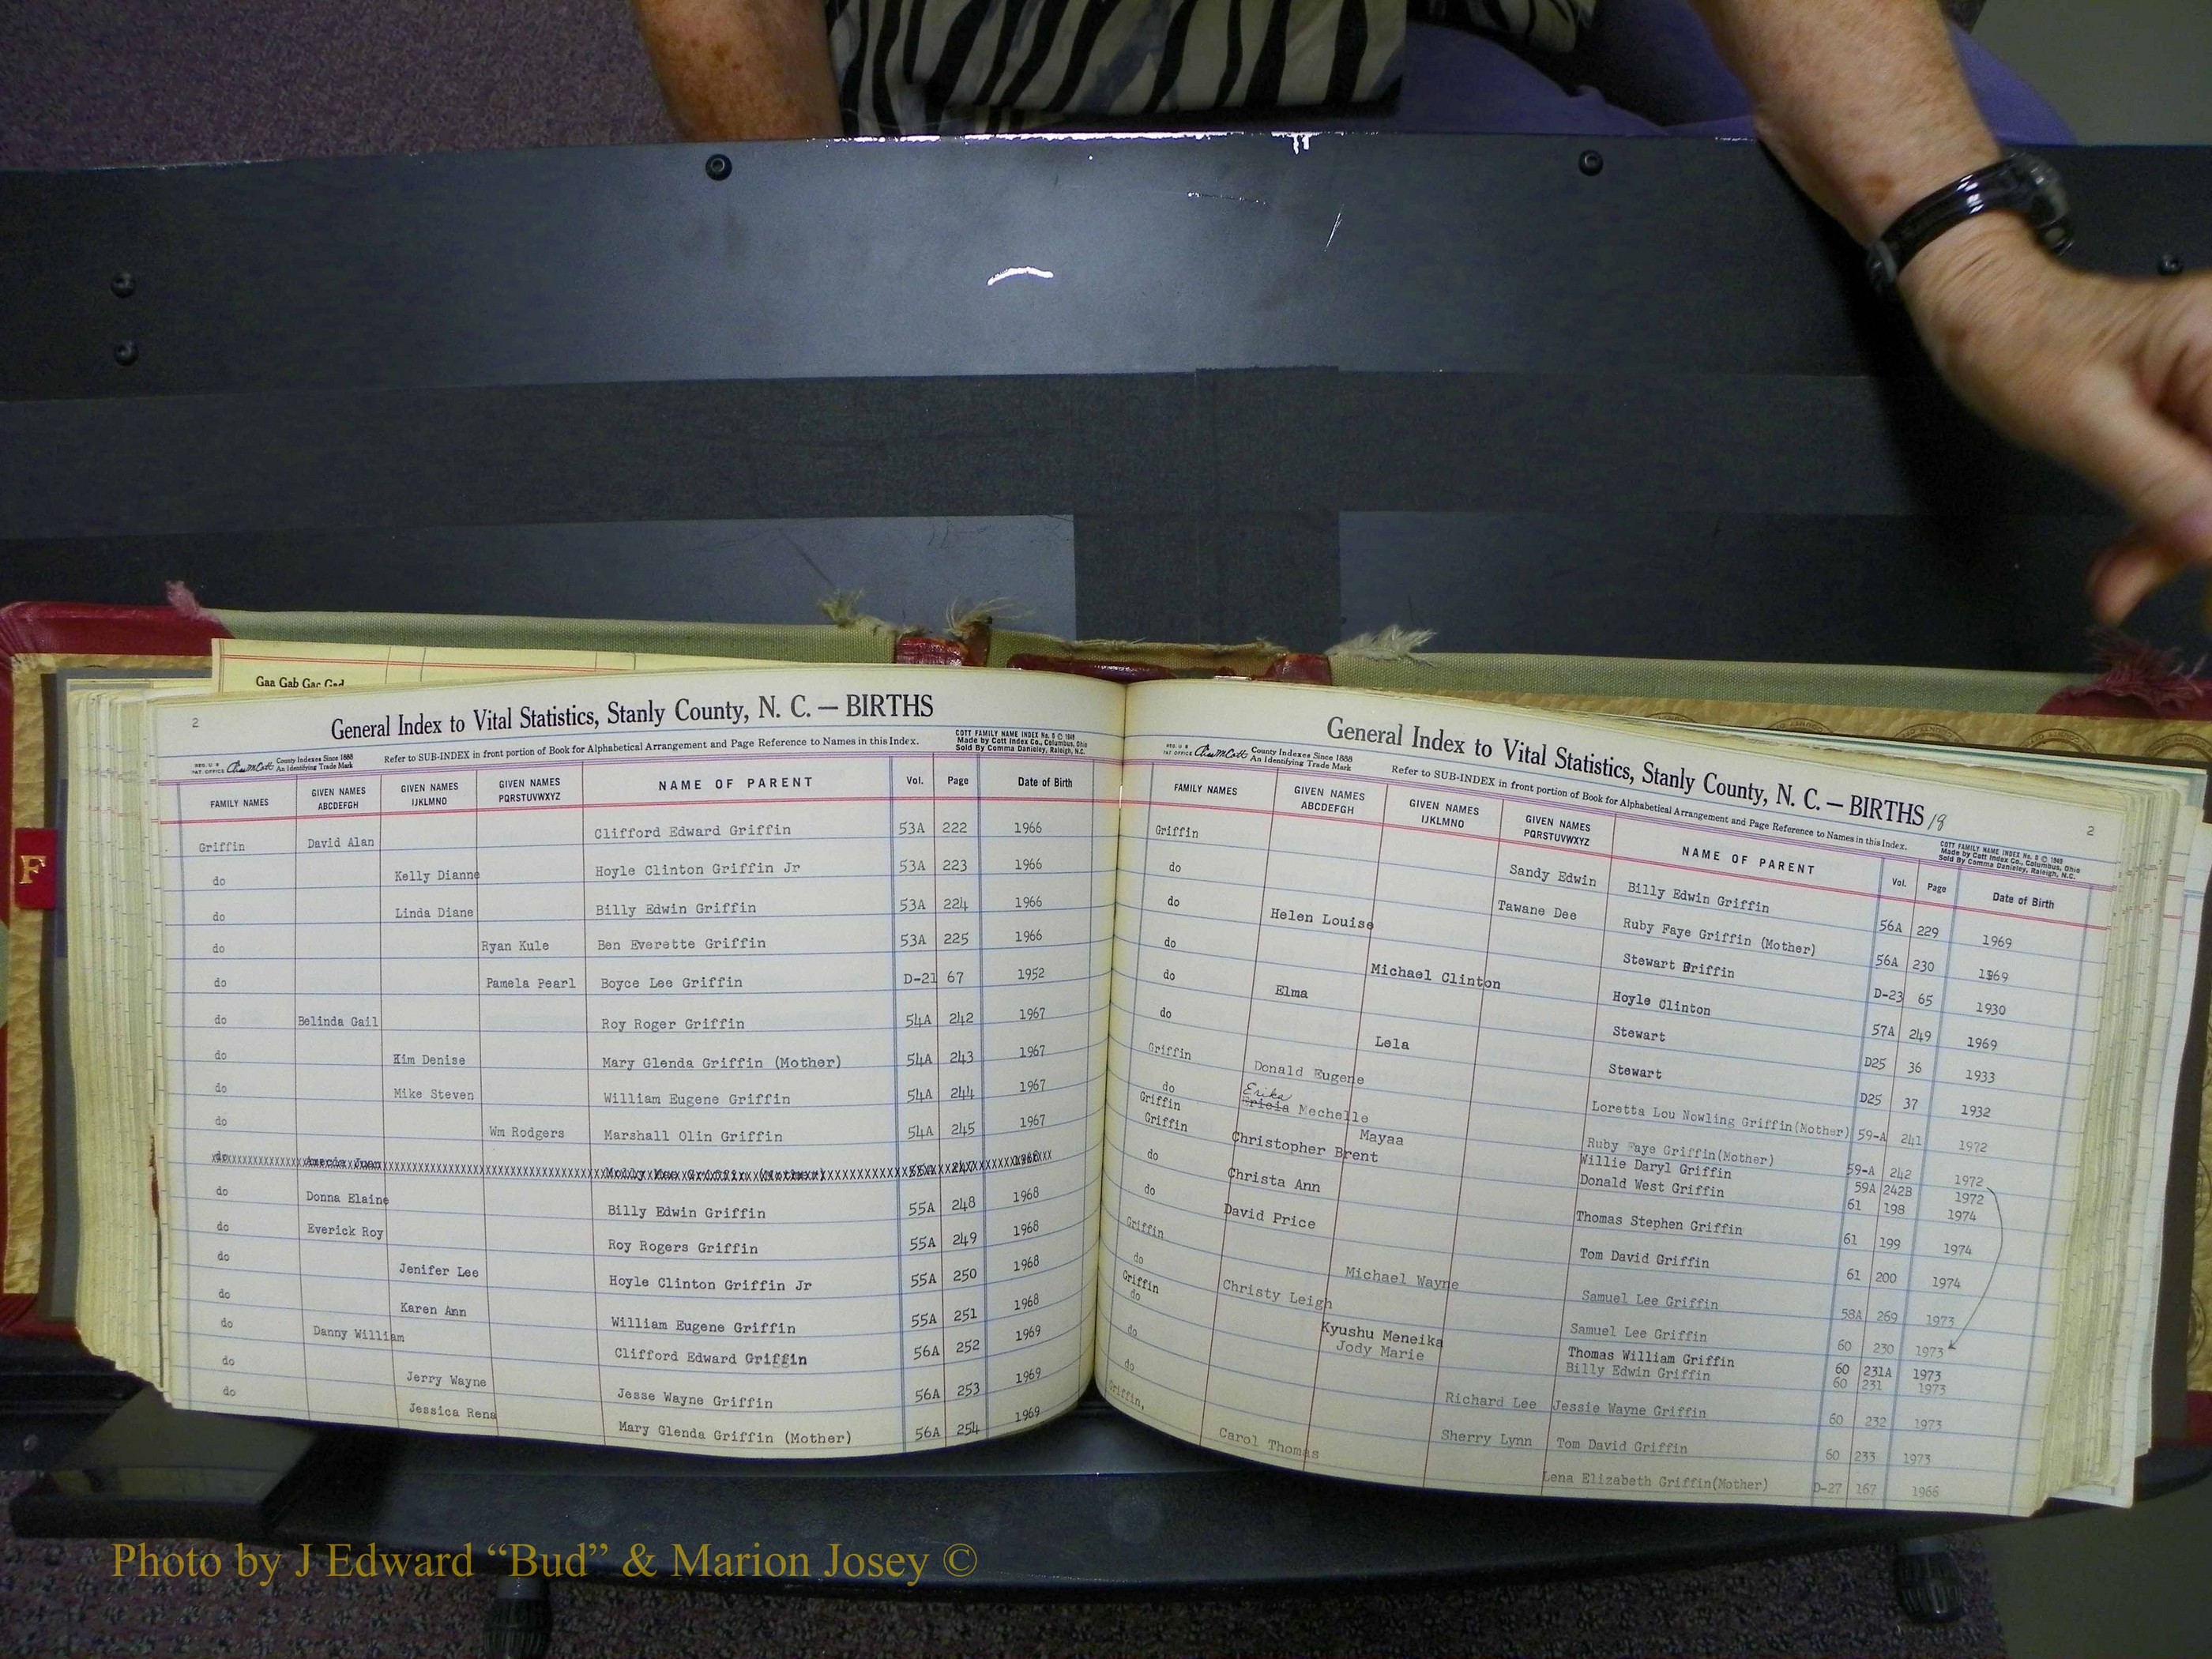 Gaa Gab Gac Gad
F
2
General Index to Vital Statistics, Stanly County, N. C. — BIRTHS
REG. U S PAT. OFFICE County Indexes Since 1888 An Identifying Trade Mark
Refer to SUB-INDEX in front portion of Book for Alphabetical Arrangement and Page Reference to Names in this Index.
COTT FAMILY NAME INDEX No. 8 © 1949
Made by Cott Index Co., Columbus, Ohio
Sold By Comma Danieley, Raleigh, N.C.
FAMILY NAMES GIVEN NAMES ABCDEFGH GIVEN NAMES IJKLMNO GIVEN NAMES PQRSTUVWXYZ NAME OF PARENT Vol. Page Date of Birth
Griffin David Alan Clifford Edward Griffin 53A 222 1966
do Kelly Dianne Hoyle Clinton Griffin Jr 53A 223 1966
do Linda Diane Billy Edwin Griffin 53A 224 1966
do Ryan Kule Ben Everette Griffin 53A 225 1966
do Pamela Pearl Boyce Lee Griffin D-21 67 1952
do Belinda Gail Roy Roger Griffin 54A 242 1967
do Kim Denise Mary Glenda Griffin (Mother) 54A 243 1967
do Mike Steven William Eugene Griffin 54A 244 1967
do Wm Rodgers Marshall Olin Griffin 54A 245 1967
do Griffin (Mother) 55A 247 1968
do Donna Elaine Billy Edwin Griffin 55A 248 1968
do Everick Roy Roy Rogers Griffin 55A 249 1968
do Jenifer Lee Hoyle Clinton Griffin Jr 55A 250 1968
do Karen Ann William Eugene Griffin 55A 251 1968
do Danny William Clifford Edward Griffin 56A 252 1969
do Jerry Wayne Jesse Wayne Griffin 56A 253 1969
do Jessica Rena Mary Glenda Griffin (Mother) 56A 254 1969
General Index to Vital Statistics, Stanly County, N. C. — BIRTHS 18
2
REG. U S PAT. OFFICE County Indexes Since 1888 An Identifying Trade Mark
Refer to SUB-INDEX in front portion of Book for Alphabetical Arrangement and Page Reference to Names in this Index.
COTT FAMILY NAME INDEX No. 8 © 1949
Made by Cott Index Co., Columbus, Ohio
Sold By Comma Danieley, Raleigh, N.C.
FAMILY NAMES GIVEN NAMES ABCDEFGH GIVEN NAMES IJKLMNO GIVEN NAMES PQRSTUVWXYZ NAME OF PARENT Vol. Page Date of Birth
Griffin Sandy Edwin Billy Edwin Griffin 56A 229 1969
do Tawane Dee Ruby Faye Griffin (Mother) 56A 230 1969
do Helen Louise Stewart Griffin D-23 65 1930
do Michael Clinton Hoyle Clinton 57A 249 1969
do Elma Stewart D25 36 1933
do Lela Stewart D25 37 1932
Griffin Donald Eugene Loretta Lou Nowling Griffin(Mother) 59-A 241 1972
do Erika Ericia Mechelle Ruby Faye Griffin(Mother) 59-A 242 1972
Griffin Mayaa Willie Daryl Griffin 59A 242B 1972
Griffin Christopher Brent Donald West Griffin 61 198 1974
do Christa Ann Thomas Stephen Griffin 61 199 1974
do David Price Tom David Griffin 61 200 1974
Griffin Michael Wayne Samuel Lee Griffin 58A 269 1973
do Christy Leigh Samuel Lee Griffin 60 230 1973
Griffin Kyushu Meneika Thomas William Griffin 60 231A 1973
do Jody Marie Billy Edwin Griffin 60 231 1973
do Richard Lee Jessie Wayne Griffin 60 232 1973
do Sherry Lynn Tom David Griffin 60 233 1973
Griffin, Carol Thomas Lena Elizabeth Griffin(Mother) D-27 167 1966
Photo by J Edward “Bud” & Marion Josey ©